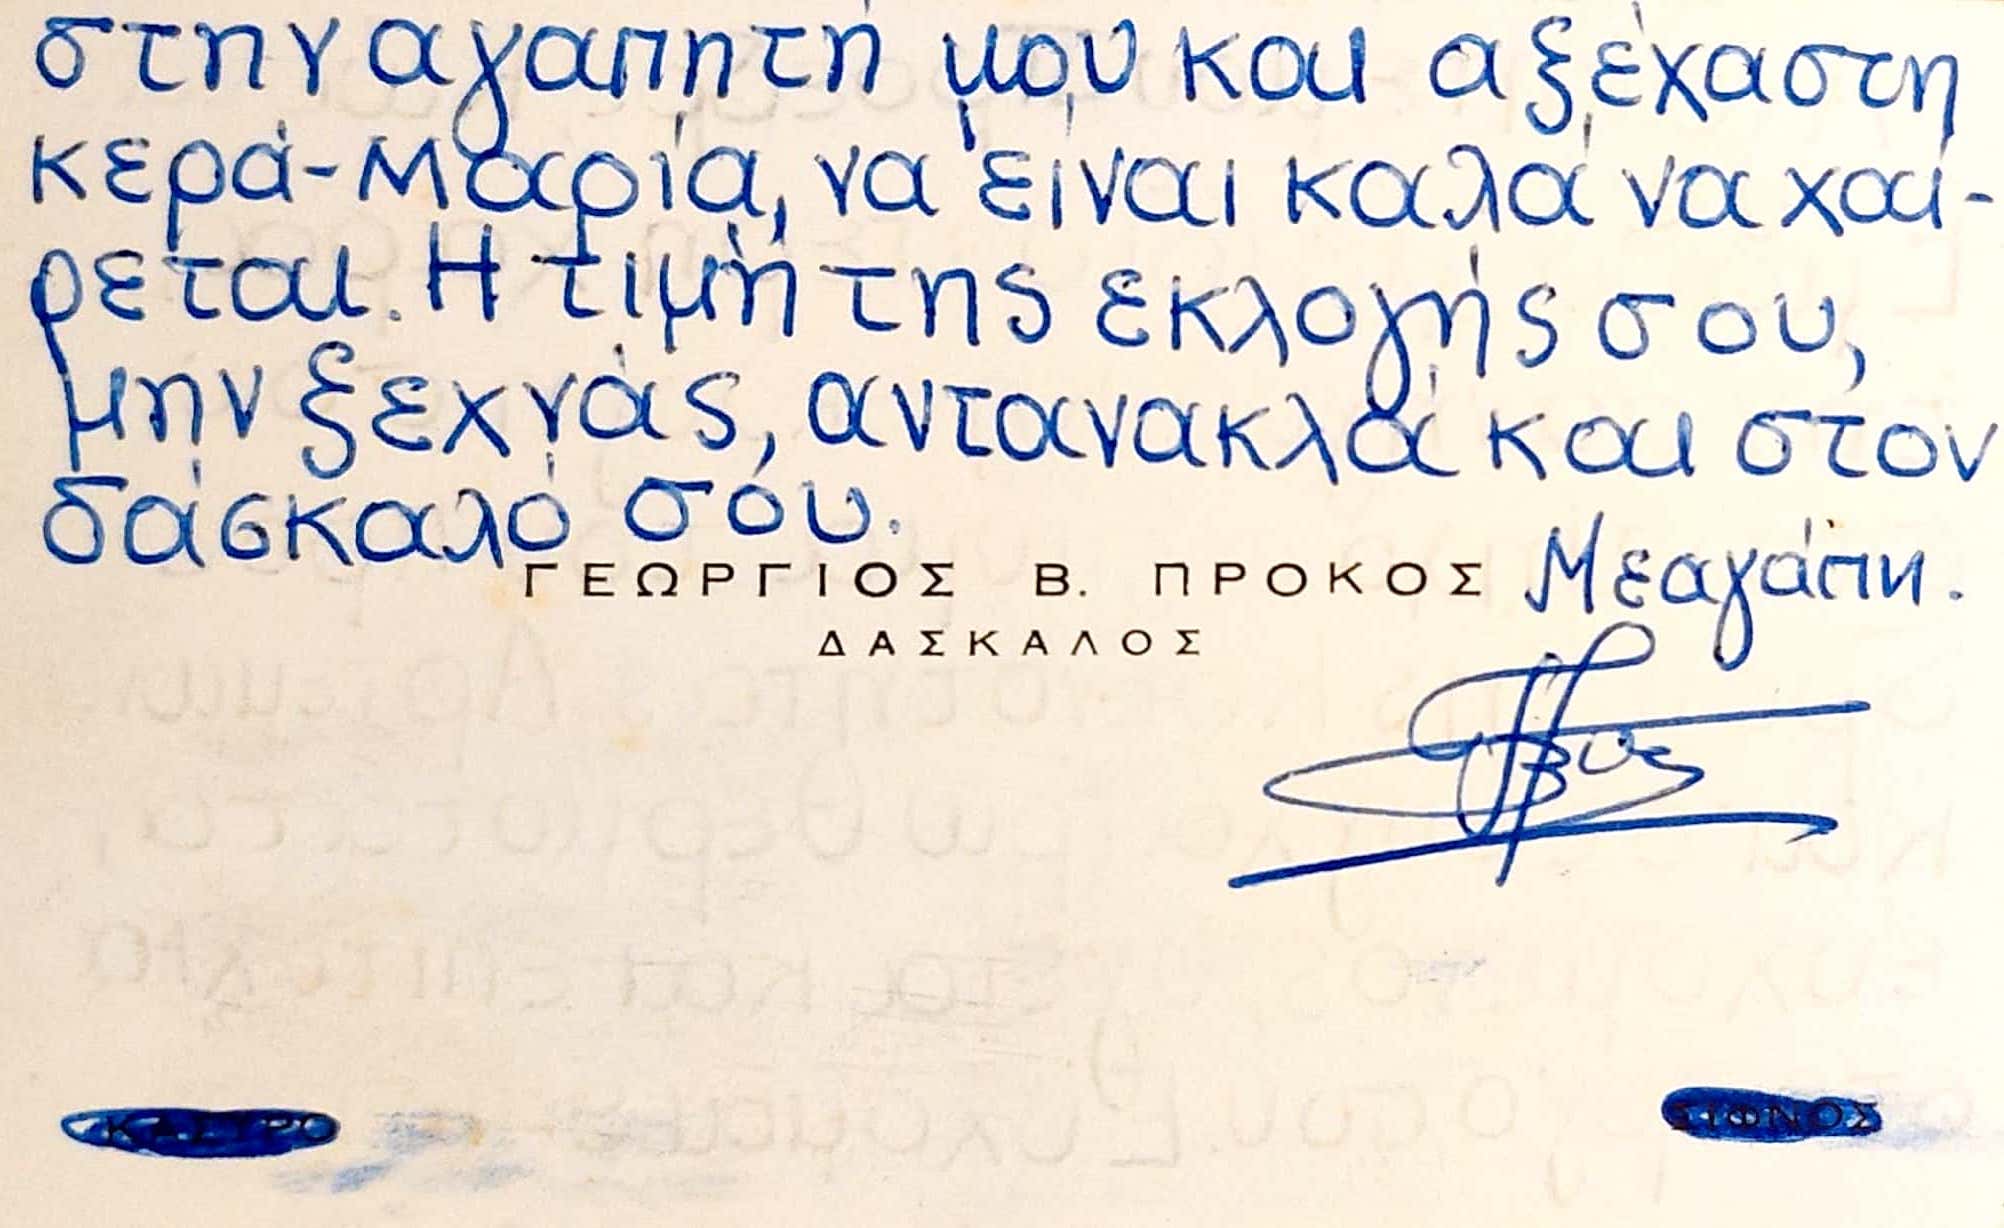 στην αγαπητή μου και αξέχαστη
κερά-Μαρία, να είναι καλά να χαί-
ρεται. Η τιμή της εκλογής σου,
μην ξεχνάς, αντανακλά και στον
δάσκαλό σου.
ΓΕΩΡΓΙΟΣ Β. ΠΡΟΚΟΣ Με αγάπη.
ΔΑΣΚΑΛΟΣ
ΚΑΣΤΡΟ ΣΙΦΝΟΣ